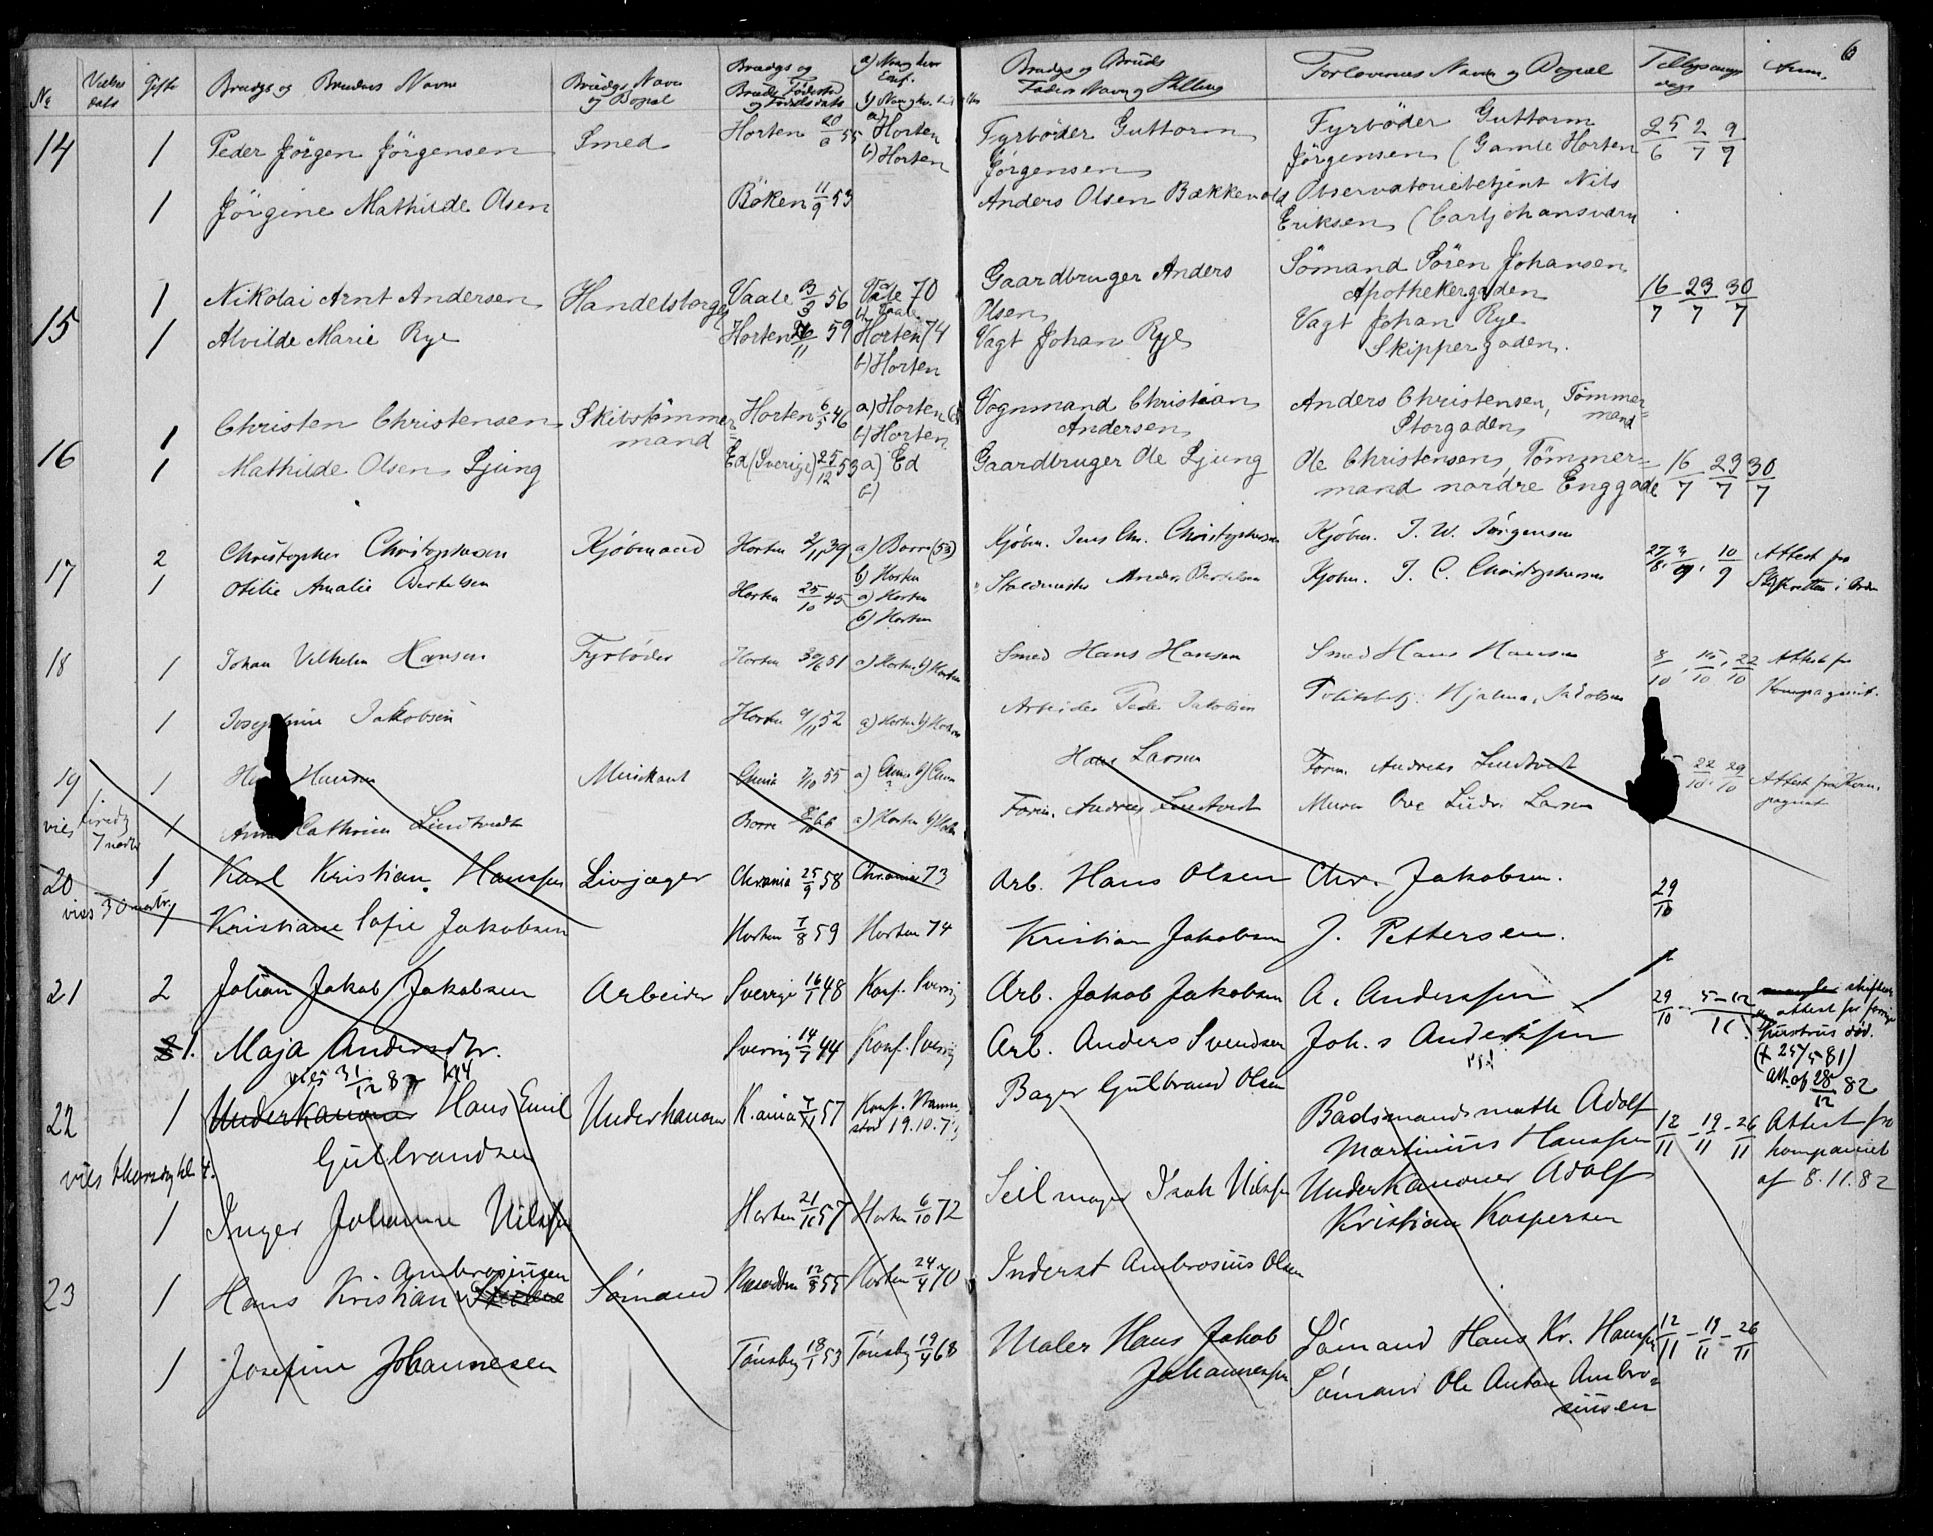 6
No Vielses dato Gifte Brudgs og Brudens Navn Brudgs Navn og Bopæl Brudgs og Bruds Fødested og Fødselsdato a) Naar og hvor Conf. Brudgs og Bruds Faders Navn og Stilling Forlovernes Navn og Bopæl Tillysnings dage Anm.
14 1 Peder Jörgen Jörgensen Smed Horten 20/6 55 a) Horten b) Horten Fyrböder Guttorm Jörgensen Fyrböder Guttorm Jörgensen (Gamle Horten 25/6 2/7 9/7
1 Jörgine Mathilde Olsen Böken 11/9 53 Anders Olsen Bækkevold Observatoriebetjent Nils Eriksen (Carljohansværn
15 1 Nikolai Arnt Andersen Handelsborger Vaale 3/3 56 a) Vaale 70 b) Vaale Gaardbruger Anders Olsen Sömand Sören Johansen Apothekergaden 16/7 23/7 30/7
1 Alvilde Marie Rye Horten 26/11 59 Horten 74 b) Horten Vagt Johan Rye Vagt Johan Rye Skippergaden.
16 1 Christen Christensen Skibstömmermand Horten 6/5 46 a) Horten b) Horten Vognmand Christian Andersen Anders Christensen, Tömmermand Storgaden
1 Mathilde Olsen Ljung Ed (Sverige) 25/12 53 a) Ed b) Gaardbruger Ole Ljung Ole Christensen, Tömmermand nordre Enggade 16/7 23/7 30/7
17 2 Christopher Christophersen Kjöbmand Horten 2/11 39 a) Borre (53) b) Horten Kjöbm. Jens Chr. Christophersen Kjöbm. J. W. Jörgensen 27/8. 3/9. 10/9 Attest fra Skifteretten i Orden
1 Otilie Amalie Bertelsen Horten 25/10 45 a) Horten b) Horten Anders Bertelsen Kjobm. J. C. Christophersen
18 1 Johan Vilhelm Hansen Fyrböder Horten 30/6 51 a) Horten b) Horten Smed Hans Hansen Smed Hans Hansen 8/10. 15/10. 22/10 Attest fra Kompagniet.
1 Josephine Jakobsen Horten 9/11 52 a) Horten b) Horten Arbeider Peder Jakobsen Politibetj. Hjalmar Jakobsen
19 1 Hansen Musikant Chania 7/10 55 Hans Larsen Form. Andreas Lindtvedt 22/10. 29/10 Attest fra Kompagniet
vies 7 1 Anne Cathrine Lindtvedt Borre a) Horten b) Horten Form. Andreas Lindtvedt Murer Ove Ludv. Larsen
20 1 Karl Kristian Hanssen Livjæger Chrania 25/9 58 Chrania 73 Arb. Hans Olsen Chr. Jakobsen. 29/10
vies 30 1 Kristiane Sofie Jakobsen Horten 7/8 59 Horten 74 Kristian Jakobsen J. Pettersen.
21 2 Johan Jakob Jakobsen Arbeider Sverrige 16/1 48 Konf. Sverrig Arb. Jakob Jakobsen A. Anderssen 29/10 - 5-12/11 skifte attest for forrige hustrus død. (+ 25/5 81) Att. af 28/12 82
1. Maja Andersdtr. Sverrig 14/7 44 Konf. Sverrig Arb. Anders Svendsen Joh.s Anderssen
vies 31/12 82 kl 4
22 1 Underkanoner Hans Emil Gulbrandsen Underkanoner K.ania 7/11 57 Konf. 19.10.73 Bager Gulbrand Olsen Bådsmandsmath Adolf Martinius Hanssen 12/11 - 19/11 - 26/11 Attest fra kompaniet af 8.11.82
vies thorsdg kl. 4.
1 Inger Johanne Nilssen Horten 21/11 57 Horten 6/10 72 Seilmager Isak Nilssen Underkanoner Adolf Kristian Kaspersen
23 1 Hans Kristian Ambrosiussen Sømand 12/8 55 Horten 24/4 70 Inderst Ambrosius Olsen Sømand Hans Kr. Hanssen 12/11 - 19/11 - 26/11
1 Josefine Johannesen Tønsbg 18/1 53 Tønsbg 19/4 68 Maler Hans Jakob Johannessen Sømand Ole Anton Ambrosiussen